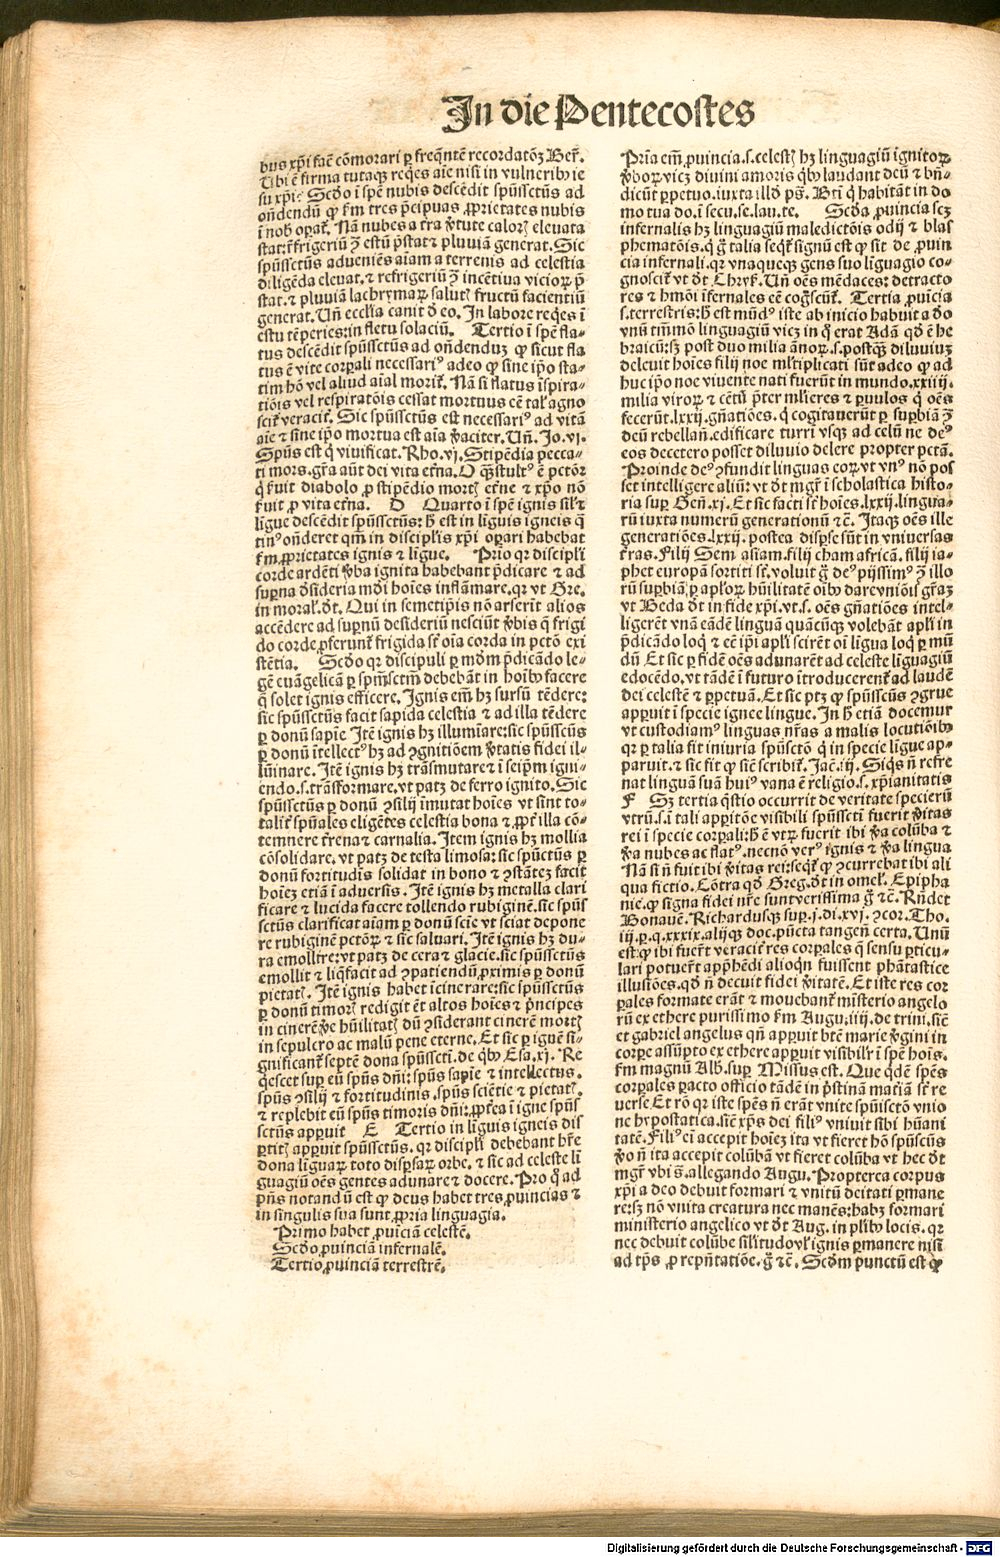 In die Pentecostes
bus xp̄i facē cōmorari ꝑ freq̄ntē recordatōꝫ Ber̄.
Ubi ē firma tutaqꝫ req̄es aīe nisi in vulneribꝰ ie
su xp̄i? Scd̄o ī spē nubis descēdit spūssctūs ad
oñdendū ꝙ km̄ tres p̄cipuas ꝓprietates nubis
ī nob̄ oꝑat̄. Nā nubes a tr̄a ꝟtute calorꝭ eleuata
stat: r̄frigeriū ꝯ estū p̄stat ⁊ pluuiā generat. Sic
spūssctūs adueniēs aīam a terrenis ad celestia
diligēda eleuat. ⁊ refrigeriū ꝯ incētiua vicioꝝ p̄
stat. ⁊ pluuiā lachrymaꝝ salutꝭ fructū facientiū
generat. Un̄ eccl̄ia canit d̄ eo. In labore req̄es ī
estu tēperies: in fletu solaciū. Tertio ī spē fla⸗
tus descēdit spūssctūs ad oñdenduꝫ ꝙ sicut fla
tus ē vite corꝑali necessariꝰ adeo ꝙ sine ip̄o sta⸗
tim hō vel aliud aīal morit̄. Nā si flatus īspira⸗
tiōis vel respiratōis cessat mortuus cē tal̄ agno
scit̄ veracit̄. Sic spūssctūs est necessariꝰ ad vitā
aīe ⁊ sine ip̄o mortua est aīa ꝟaciter. Un̄. Jo. vi.
Spūs est q̄ viuificat. Rho. vi. Stipēdia pecca⸗
ti mors. gr̄a aūt dei vita et̄na. O q̄ꝫ stultꝰ ē pctōr
q̄ ẜuit diabolo ꝓ stipēdio mortꝭ et̄ne ⁊ xp̄o nō
ẜuit ꝓ vita et̄na. D Quarto ī spē ignis sil̄ ⁊
līgue descēdit spūssctūs: h̄ est in līguis igneis q̄
tinꝰ oñderet qm̄ in disciplis xp̄i oꝑari habebat
km̄ ꝓprietates ignis ⁊ līgue. Prīo qr discipl̄i
corde ardēti ꝟba ignita habebant p̄dicare ⁊ ad
suꝑna d̄sideria mōi hoīes inflāmare. qr vt Gre.
in moral̄. d̄t. Qui in semetip̄is nō arserīt alios
accēdere ad suꝑnū desideriū nesciūt ꝟbis q̄ frigi
do corde ꝓferunt̄ frigida st̄ oīa corda in pctō exi
stētia. Scd̄o qr discipuli ꝑ mōm p̄dicādo le⸗
gē euāgelicā ꝑ spm̄sctm̄ debebāt in hoībꝰ facere
q̄ solet ignis efficere. Ignis em̄ hꝫ sursū tēdere:
sic spūssctūs facit sapida celestia ⁊ ad illa tēdere
ꝑ donū sapīe Itē ignis hꝫ illumīare: sic spūsscūs
ꝑ donū ītellectꝰ hꝫ ad ꝯgnitiōem ꝟtatis fidei il⸗
lūinare. Itē ignis hꝫ trāsmutare ⁊ ī seipm̄ igni⸗
endo. s. trāsformare. vt patꝫ de ferro ignito. Sic
spūssctūs ꝑ donū ꝯsilij īmutat hoīes vt sint to⸗
talit̄ spūales eligētes celestia bona ⁊ ꝓpt̄ illa cō⸗
temnere t̄rena ⁊ carnalia. Item ignis hꝫ mollia
cōsolidare. vt patꝫ de testa limosa: sic spūctūs ꝑ
donū fortitudīs solidat in bono ⁊ ꝯstāteꝫ facit
hoīeꝫ etiā ī aduersis. Itē ignis hꝫ metalla clari
ficare ⁊ lucida facere tollendo rubiginē. sic spūs
sctūs clarificat aīam ꝑ donū scīe vt sciat depone
re rubiginē pctōꝝ ⁊ sic saluari. Itē ignis hꝫ du⸗
ra emollire: vt patꝫ de cera ⁊ glacie. sic spūssctūs
emollit ⁊ liq̄facit ad ꝯpatiendū ꝓximis ꝑ donū
pietatꝭ. Itē ignis habet īcinerare: sic spūssctūs
ꝑ donū timorꝭ redigit ēt altos hoīes ⁊ p̄ncipes
in cinerē ꝟe hūilitatꝭ dū ꝯsiderant cinerē mortꝭ
in sepulcro ac malū pene eterne. Et sic ꝑ iguē si⸗
gnificant̄ septē dona spūssctī. de q̄bꝰ Esa. xi. Re
q̄escet suꝑ eū spūs dñi: spūs sapīe ⁊ intellectus.
spūs ꝯsilij ⁊ fortitudinis. spūs sciētie ⁊ pietatꝭ.
⁊ replebit eū spūs timoris dñi: ꝓpt̄ea ī igne spūs
sctūs apꝑuit E Tertio in līguis igneis dis
ꝑtitꝭ apꝑuit spūssctūs. qr discipl̄i debebant hr̄e
dona līguaꝝ toto disꝑsaꝝ orbe. ⁊ sic ad celeste lī
guagiū oēs gentes adunare ⁊ docere. Pro q̄ ad
pn̄s notand ū est ꝙ deus habet tres ꝓuincias ⁊
in singulis sua sunt ꝓpria linguagia.
Primo habet ꝓuīciā celestē.
Scd̄o ꝓuinciā infernalē.
Tertio ꝓuinciā terrestrē.
Prīa em̄ ꝓuincia. s. celestꝭ hꝫ linguagiū ignitoꝝ
ꝟboꝝ vicꝫ diuini amoris q̄bꝰ laudant deū ⁊ bn̄⸗
dicūt ꝑpetuo. iuxta ill̄d ps̄. Btī q̄ habitāt in do
mo tua do. ī secu. se. lau. te. Scd̄a ꝓuincia scꝫ
infernalis hꝫ linguagiū maledictōis odij ⁊ blas
phematōis. q̄ g̊ talia seqt̄ signū est ꝙ sit de ꝓuin
cia infernali. qr vnaqueqꝫ gens suo līguagio co⸗
gnoscit̄ vt d̄t Chryẜ. Un̄ oēs mēdaces: detracto
res ⁊ hmōi īfernales eē cog̃scūt̄. Tertia ꝓuīcia
s. terrestris: h̄ est mūdꝰ iste ab inicio habuit a do
vnū tm̄mō linguagiū vicꝫ in q̄ erat Adā qd̄ ē he
braicū: sꝫ post duo milia ānoꝝ. s. postq̄ꝫ diluuiuꝫ
deleuit hoīes filij noe ml̄tiplicati sūt adeo ꝙ ad
huc ip̄o noe viuente nati fuerūt in mundo. xxiiij.
milia viroꝝ ⁊ cētū p̄ter ml̄ieres ⁊ ꝑuulos q̄ oēs
fecerūt. lxxij. gn̄atiōes. q̄ cogitauerūt ꝑ suꝑbiā ꝯ
deū rebellan̄. edificare turrī vsqꝫ ad celū ne deꝰ
eos decetero posset diluuio delere propter pctā.
Proinde deꝰ ꝯfundit linguas eoꝝ vt vnꝰ nō pos
set intelligere aliū: vt d̄t mgr̄ ī scholastica histo⸗
ria suꝑ Gen̄. xi. Et sic facti st̄ hoīes. lxxij. lingua⸗
rū iuxta numerū generationū ⁊ c̄. Itaqꝫ oēs ille
generatiōes. lxxij. postea disꝑse sūt in vniuersas
t̄ras. Filij Sem asiam. filij cham africā. filij ia⸗
phet europā sortiti st̄. voluit g̊ deꝰ pijssimꝰ ꝯ illo
rū suꝑbiā ꝑ ap̄loꝝ hūilitatē oībꝰ dare vniōis gr̄aꝫ
vt Beda d̄t in fide xp̄i. vt. s. oēs gn̄atiōes intel⸗
ligerēt vnā eādē linguā quācūqꝫ volebāt apl̄i in
p̄dicādo loq̄ ⁊ eē ip̄i apl̄i scirēt oī līgua loq̄ ꝑ mū
dū Et sic ꝑ fidē oēs adunarēt ad celeste līguagiū
edocēdo. vt tādē ī futuro ītroducerent̄ ad laudē
dei celestē ⁊ ꝑpetuā. Et sic ptꝫ ꝙ spūsscūs ꝯgrue
apꝑuit ī specie ignee lingue. In h̄ etiā docemur
vt custodiamꝰ linguas nr̄as a malis locutiōibꝰ
qr ꝑ talia fit iniuria spūsctō q̄ in specie līgue ap⸗
paruit. ⁊ sic fit ꝙ siē scribit̄. Jac. iij. Siqs n̄ refre
nat linguā suā huiꝰ vana ē religio. s. xp̄ianitatis
F Sꝫ tertia q̄stio occurrit de veritate specierū
vtrū. s. ī tali appitōe visibili spūssctī fuerit ꝟitas
rei ī specie corꝑali: h̄ ē vtꝝ fuerit ibi ꝟa colūba ⁊
ꝟa nubes ac flatꝰ. necnō verꝰ ignis ⁊ ꝟa lingua
Nā si n̄ fuit ibi ꝟitas rei: seqt̄ ꝙ ꝯcurrebat ibi ali
qua fictio. Cōtra qd̄ Greg. d̄t in omel̄. Epipha
nie. ꝙ signa fidei nr̄e sunt verissima g̊ ⁊ c̄. Rn̄det
Bonauē. Richardusqꝫ suꝑ. j. di. xvj. ꝯcor. Tho.
iij. ꝑ. q. xxxix. alijqꝫ doc. pūcta tangen̄ certa. Unū
est: ꝙ ibi fuer̄t veracit̄ res corꝑales q̄ sensu ꝑticu⸗
lari potuer̄t app̄hēdi alioqn̄ fuissent phātastice
illusiōes. qd̄ n̄ decuit fidei ꝟitatē. Et iste res cor
ꝑales formate erāt ⁊ mouebant̄ mīsterio angelo
rū ex ethere purissimo km̄ Augu. iiij. de trini. siē
et gabriel angelus qn̄ apꝑuit btē marie ꝟgini in
corꝑe assūpto ex ethere apꝑuit visibil̄r ī spē hoīs.
km̄ magnū Alb̄. suꝑ Missus est. Que qd̄ē spēs
corꝑales ꝑacto officio tādē in p̄stinā matīā st̄ re
uerse. Et rō qr iste spēs n̄ erāt vnite spūisctō vnio
ne hyꝑostatica. siē xp̄s dei filiꝰ vniuit sibi hūani
tatē. Filiꝰ eī accepit hoīeꝫ ita vt fieret hō spūscūs
ꝟo n̄ ita accepit colūbā vt fieret colūba vt hec d̄t
mgr̄ vbi s̄. allegando Augu. Propterea corpus
xp̄i a deo debuit formari ⁊ vnitū deitati ꝑmane
re: sꝫ nō vnita creatura nec manēs: habꝫ formari
ministerio angelico vt d̄t Aug. in pl̄ibꝰ locis. qr
nec debuit colūbe sil̄itudo vl̄ ignis ꝑmanere nisi
ad tp̄s ꝓ rep̄n̄tatiōe. g̊ ⁊ c̄. Scd̄m punctū est ꝙ
Digitalisierung gefördert durch die Deutsche Forschungsgemeinschaft - DFG